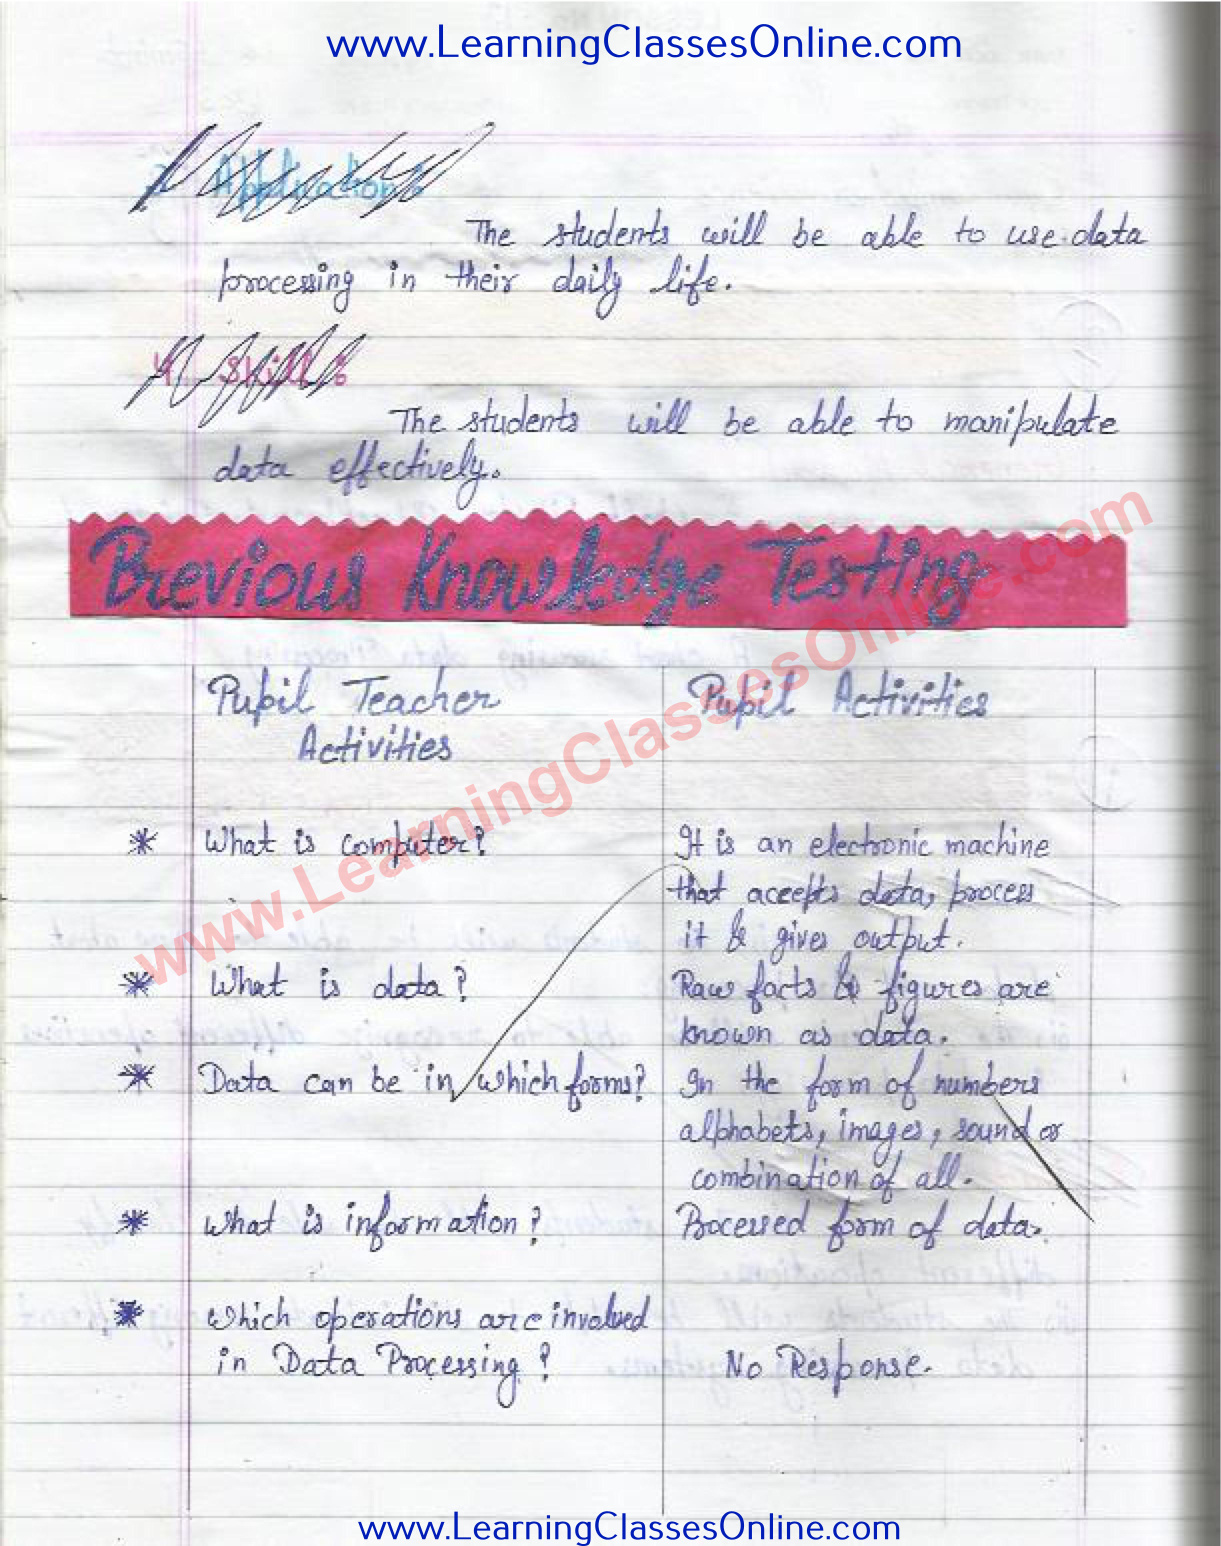 www.LearningClassesOnline.com
3. Application :
The students will be able to use data
processing in their daily life.
4. Skill :
The students will be able to manipulate
data effectively.
Previous Knowledge Testing
Pupil Teacher
Activities
Pupil Activities
* What is computer?
It is an electronic machine
that accepts data, process
it & gives output.
* What is data?
Raw facts & figures are
known as data.
* Data can be in which forms?
In the form of numbers
alphabets, images, sound or
combination of all.
* What is information?
Processed form of data.
* Which operations are involved
in Data Processing?
No Response.
www.LearningClassesOnline.com
www.LearningClassesOnline.com